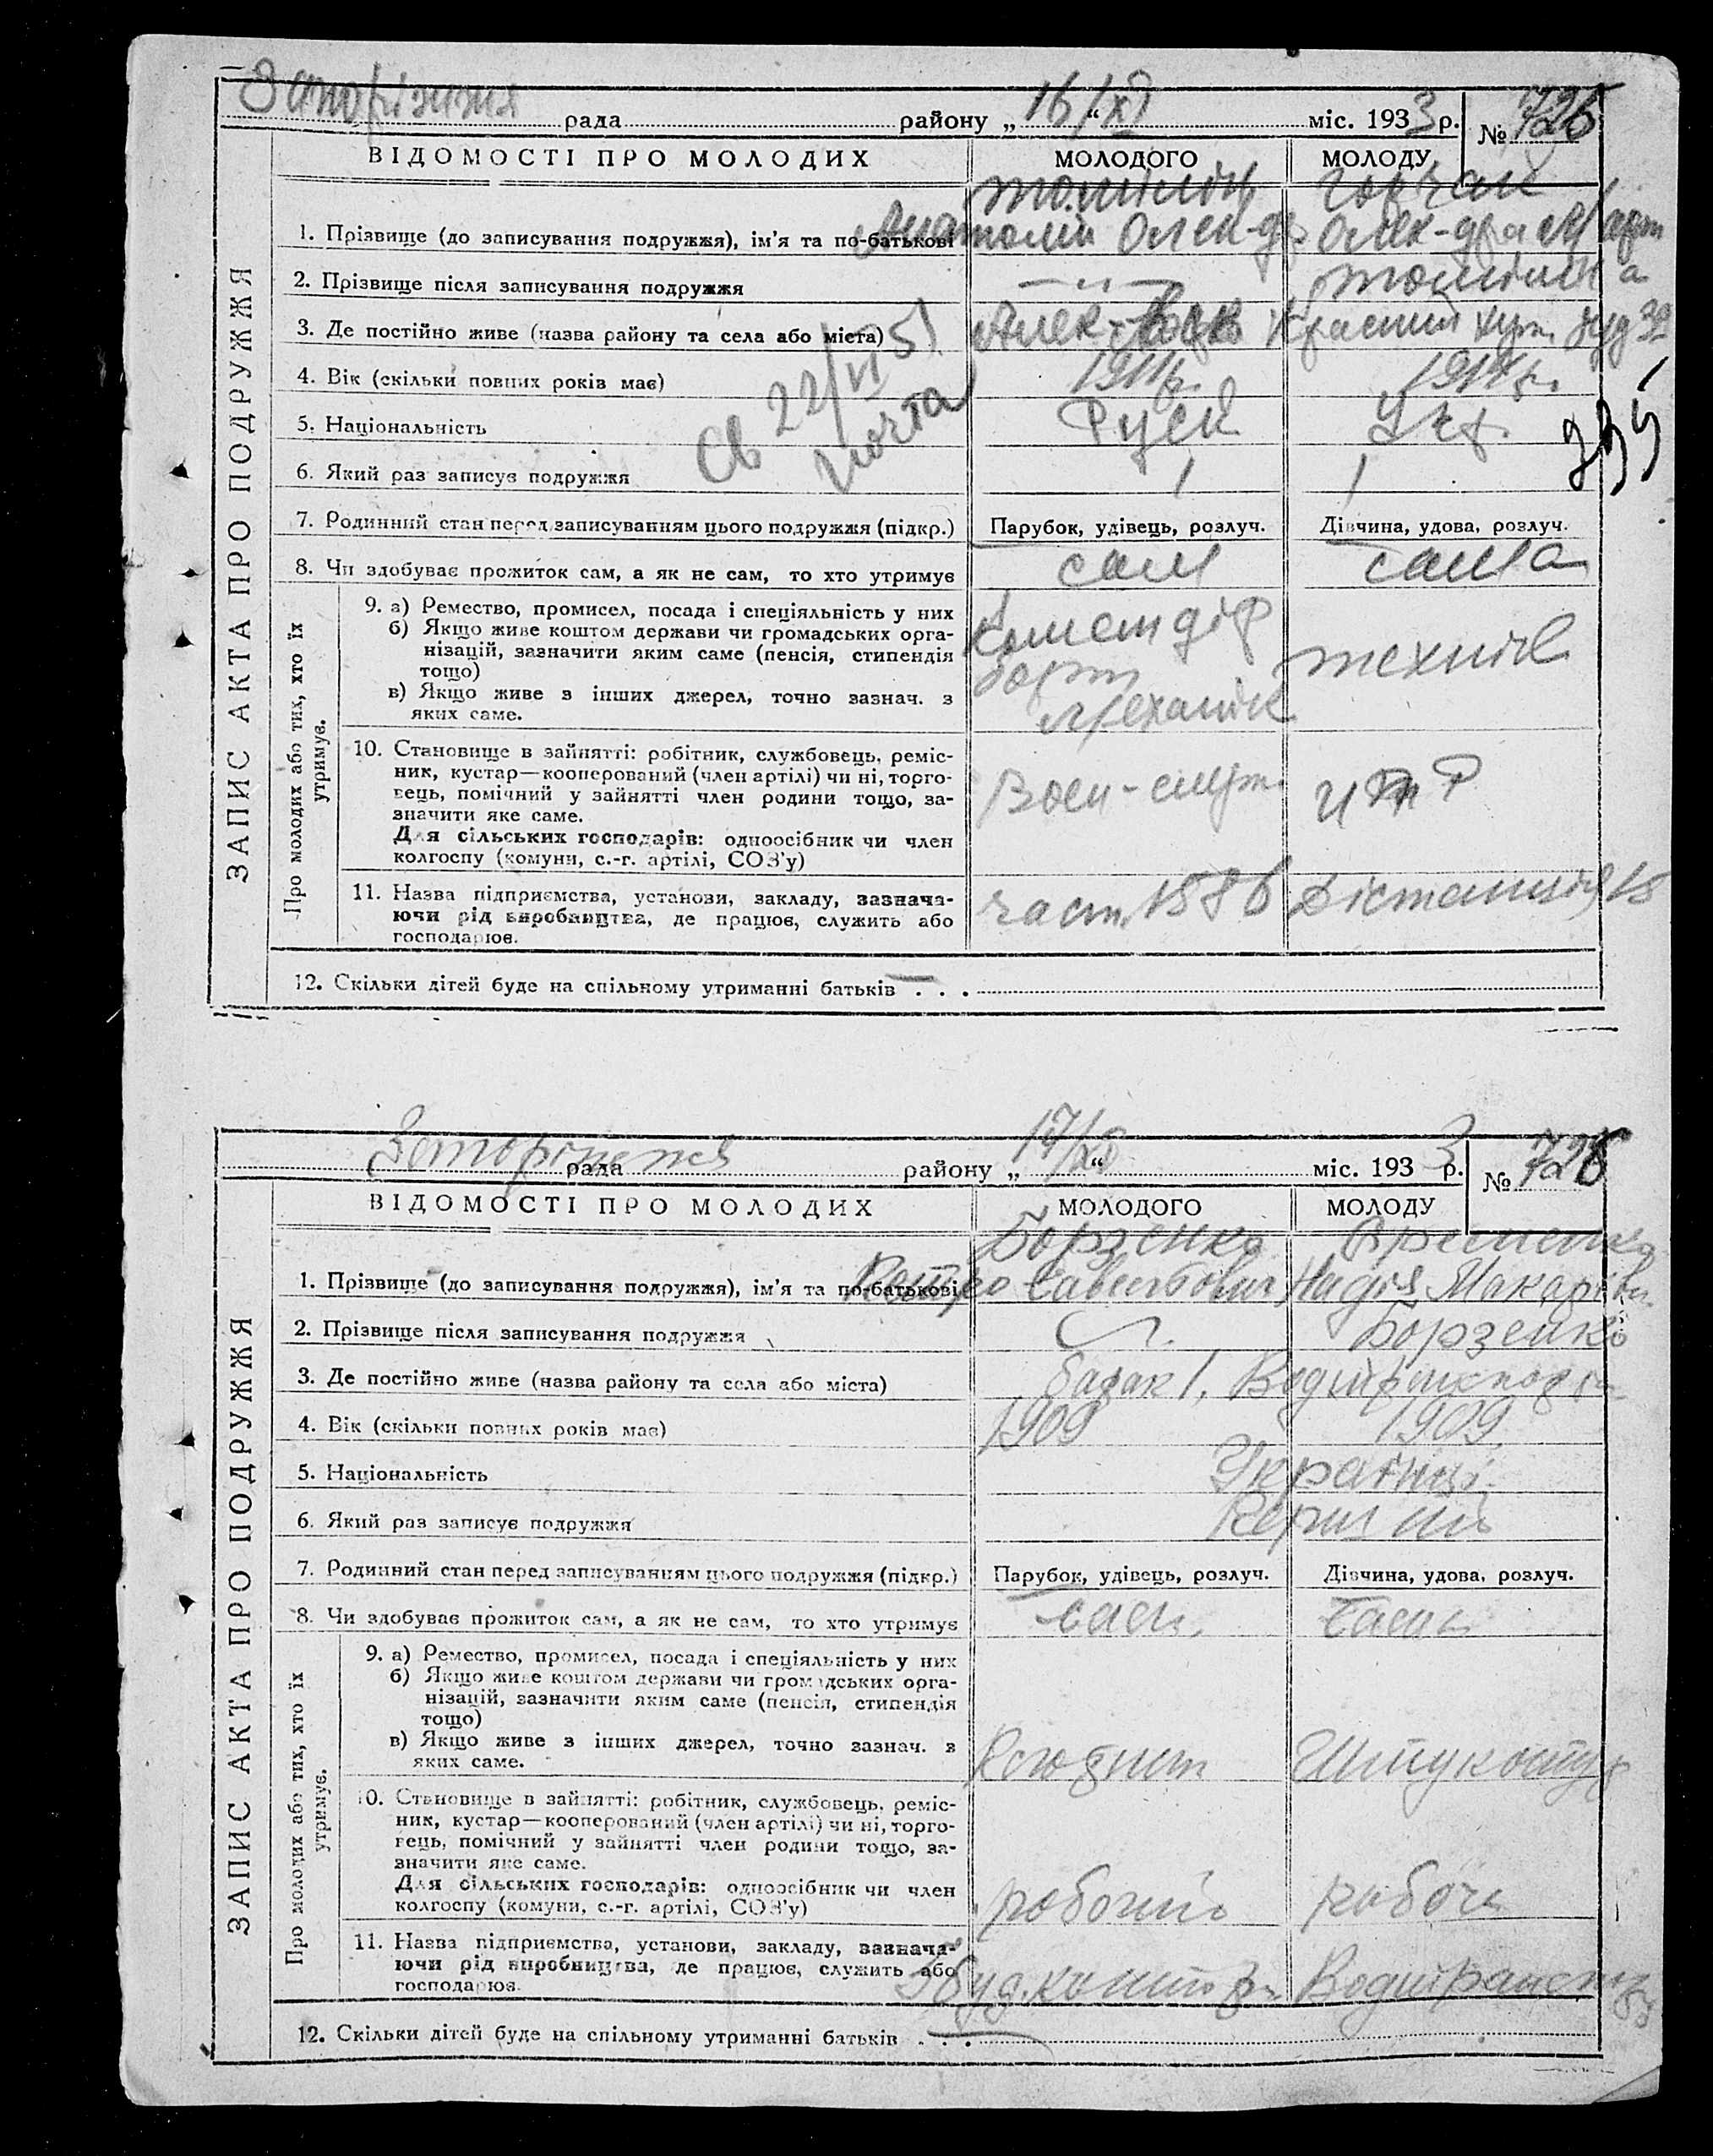 Запоріжжя рада району „ 16/XI “ міс. 1933 р. № 725
ВІДОМОСТІ ПРО МОЛОДИХ МОЛОДОГО МОЛОДУ
ЗАПИС АКТА ПРО ПОДРУЖЖЯ
Томілін
1. Прізвище (до записування подружжя), ім'я та по-батькові Анатолій Олек-др Олек-дра Март
2. Прізвище після записування подружжя — " — Томіліна
3. Де постійно живе (назва району та села або міста) Красний хут. буд 32
4. Вік (скільки повних років має) 1911 р. 1914 р.
Св 22/VI 51
почта
5. Національність Руськ Укр.
6. Який раз записує подружжя 1 1
7. Родинний стан перед записуванням цього подружжя (підкр.) Парубок, удівець, розлуч. Дівчина, удова, розлуч.
8. Чи здобуває прожиток сам, а як не сам, то хто утримує сам сама
Про молодих або тих, хто їх утримує.
9. а) Ремество, промисел, посада і спеціяльність у них
б) Якщо живе коштом держави чи громадських орга-
нізацій, зазначити яким саме (пенсія, стипендія
тощо)
в) Якщо живе з інших джерел, точно зазнач. з
яких саме.
борт
механік
технік
10. Становище в зайнятті: робітник, службовець, реміс-
ник, кустар—кооперований (член артілі) чи ні, торго-
вець, помічний у зайнятті член родини тощо, за-
значити яке саме.
Для сільських господарів: одноосібник чи член
колгоспу (комуни, с.-г. артілі, СОЗ'у)
Воен-служ. ИТР
11. Назва підприємства, установи, закладу, зазнача-
ючи рід виробництва, де працює, служить або
господарює.
част. 1586 Дістанція 15
12. Скільки дітей буде на спільному утриманні батьків — . . .
Запоріжжя рада району „ 17/XI “ міс. 1933 р. № 726
ВІДОМОСТІ ПРО МОЛОДИХ МОЛОДОГО МОЛОДУ
ЗАПИС АКТА ПРО ПОДРУЖЖЯ
Борзенко Яременко
1. Прізвище (до записування подружжя), ім'я та по-батькові Петро Савитович Надія Макарівн.
2. Прізвище після записування подружжя Борзенко
3. Де постійно живе (назва району та села або міста) барак 1, Водтранспорт
4. Вік (скільки повних років має) 1909 1909
5. Національність Українці
6. Який раз записує подружжя Перший
7. Родинний стан перед записуванням цього подружжя (підкр.) Парубок, удівець, розлуч. Дівчина, удова, розлуч.
8. Чи здобуває прожиток сам, а як не сам, то хто утримує сам. сама
Про молодих або тих, хто їх утримує.
9. а) Ремество, промисел, посада і спеціяльність у них
б) Якщо живе коштом держави чи громадських орга-
нізацій, зазначити яким саме (пенсія, стипендія
тощо)
в) Якщо живе з інших джерел, точно зазнач. з
яких саме.
Штукатур
10. Становище в зайнятті: робітник, службовець, реміс-
ник, кустар—кооперований (член артілі) чи ні, торго-
вець, помічний у зайнятті член родини тощо, за-
значити яке саме.
Для сільських господарів: одноосібник чи член
колгоспу (комуни, с.-г. артілі, СОЗ'у)
робочий рабоча
11. Назва підприємства, установи, закладу, зазнача-
ючи рід виробництва, де працює, служить або
господарює.
Водтрансп
12. Скільки дітей буде на спільному утриманні батьків . . .